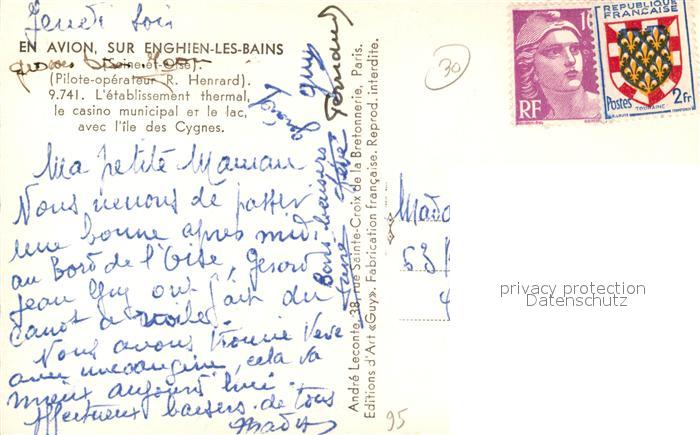 Jeudi soir
EN AVION, SUR ENGHIEN-LES-BAINS
(Seine-et-Oise)
(Pilote-opérateur R. Henrard).
9.741. L'établissement thermal,
le casino municipal et le lac,
avec l'île des Cygnes.
Ma petite Maman
Nous venons de passer
une bonne après midi
au Bord de l'Oise, Gérard
Jean Guy ont fait du
canot à voile.
Nous avons trouvé
avec une angine, cela va
mieux aujourd'hui.
Affectueux baisers de tous
Bons baisers
Guy
Fernand
André Leconte, 38, rue Sainte-Croix de la Bretonnerie, Paris.
Editions d'Art «Guy». Fabrication française. Reprod. interdite.
30
RF
REPUBLIQUE
FRANÇAISE
Postes 2Fr
TOURAINE
Mada
63
4
95
privacy protection
Datenschutz